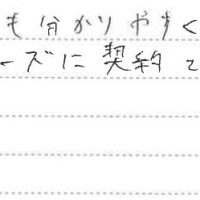 も分かりやすく
ーズに契約で